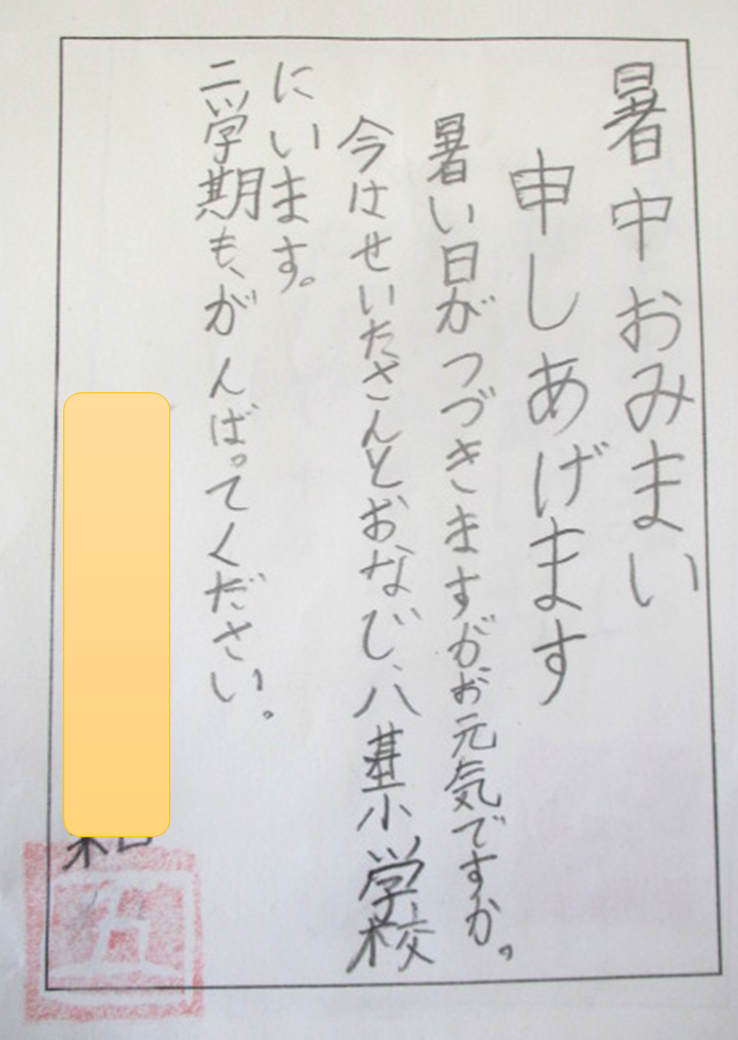 暑中おみまい
申しあげます
暑い日がつづきますがお元気ですか。
今はせいたさんとおなじ、八基小学校
にいます。
二学期も、がんばってください。